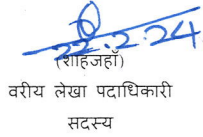 22.2.24
(शाहजहाँ)
वरीय लेखा पदाधिकारी
सदस्य